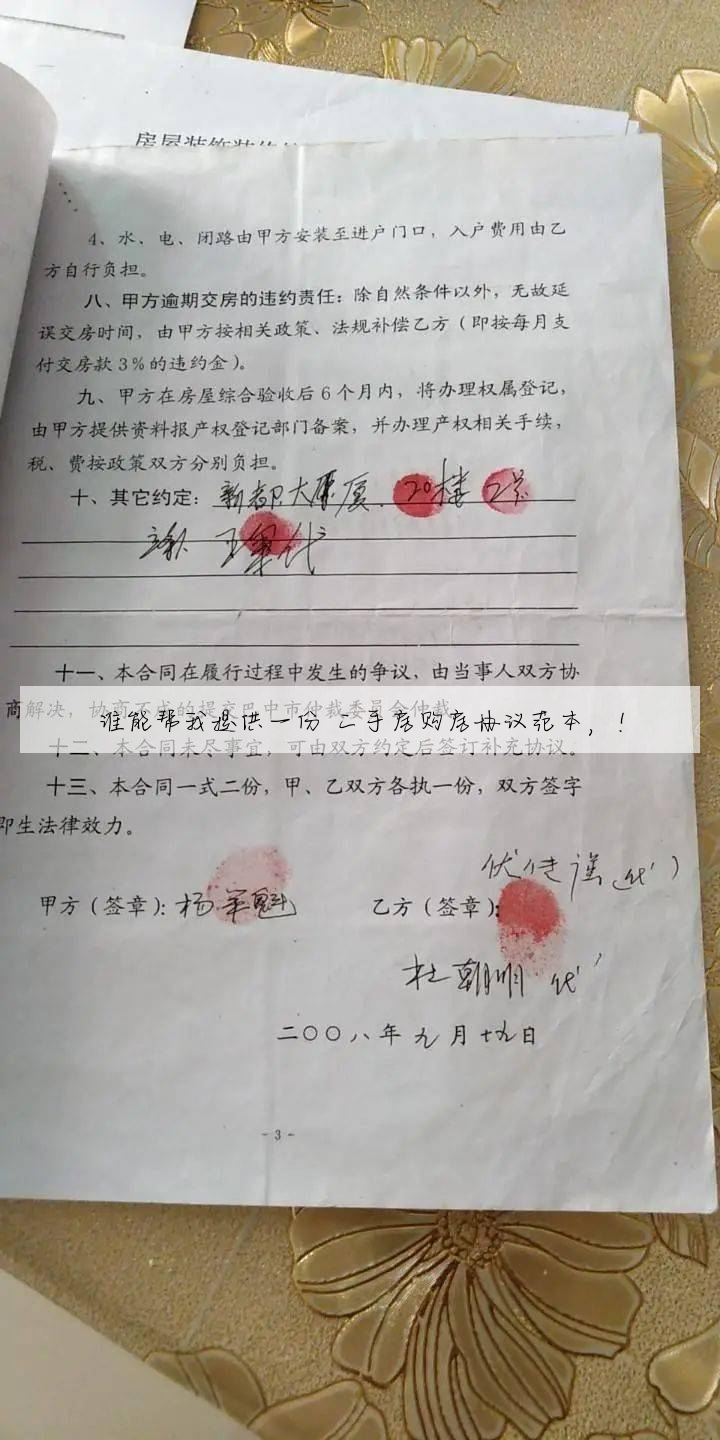 房屋装饰装修
4、水、电、闭路由甲方安装至进户门口，入户费用由乙
方自行负担。
八、甲方逾期交房的违约责任：除自然条件以外，无故延
误交房时间，由甲方按相关政策、法规补偿乙方（即按每月支
付交房款3%的违约金）。
九、甲方在房屋综合验收后6个月内，将办理权属登记，
由甲方提供资料报产权登记部门备案，并办理产权相关手续，
税、费按政策双方分别负担。
十、其它约定：新都大厦、20楼2号
十一、本合同在履行过程中发生的争议，由当事人双方协
商解决，协商不成的提交巴中市仲裁委员会仲裁
谁能帮我提供一份 二手房购房协议范本，！
十二、本合同未尽事宜，可由双方约定后签订补充协议。
十三、本合同一式二份，甲、乙双方各执一份，双方签字
即生法律效力。
甲方（签章）：杨军魁
乙方（签章）：
杜朝明 代
二〇〇八年九月十九日
- 3 -